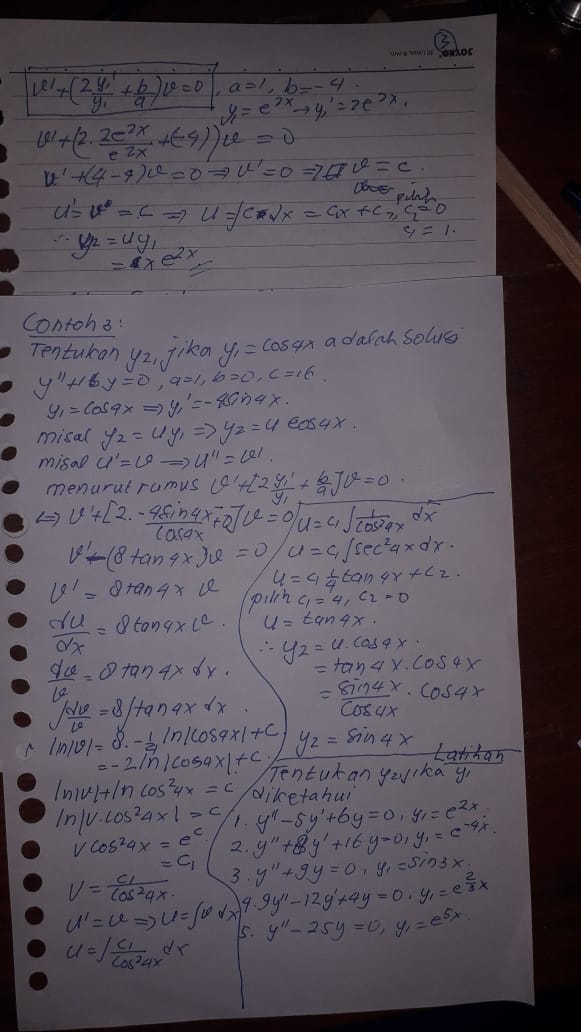 3
JOYKO
v' + (2 y₁'/y₁ + b/a) v = 0, a=1, b=-4.
y₁ = e^2x → y₁' = 2e^2x.
v' + (2. 2e^2x/e^2x + (-4)) v = 0
v' + (4-4)v = 0 ⇒ v' = 0 ⇒ v = c.
u' = v = c ⇒ u = ∫c dx = c₁x + c₂, pilih c₂ = 0
c₁ = 1.
∴ y₂ = uy₁
= x e^2x
Contoh 3:
Tentukan y₂, jika y₁ = cos4x adalah Solusi
y'' + 16y = 0, a=1, b=0, c=16.
y₁ = cos4x ⇒ y₁' = -4sin4x.
misal y₂ = uy₁ ⇒ y₂ = u cos4x.
misal u' = v ⇒ u'' = v'
menurut rumus v' + [2 y₁'/y₁ + b/a] v = 0.
⇔ v' + [2. -4sin4x/cos4x + 0] v = 0
v' - (8 tan4x)v = 0
v' = 8 tan4x v
dv/dx = 8 tan4x v.
dv/v = 8 tan4x dx.
∫dv/v = 8∫tan4x dx
ln|v| = 8. -1/4 ln|cos4x| + c
= -2 ln|cos4x| + c.
ln|v| + ln cos²4x = c
ln|v. cos²4x| = c
v cos²4x = e^c
= c₁
v = c₁/cos²4x.
u' = v ⇒ u = ∫v dx
u = ∫ c₁/cos²4x dx
u = c₁ ∫ 1/cos²4x dx
u = c₁ ∫sec²4x dx.
u = c₁ 1/4 tan4x + c₂.
pilih c₁ = 4, c₂ = 0
u = tan4x.
∴ y₂ = u. cos4x.
= tan4x. cos4x
= sin4x/cos4x . cos4x
y₂ = sin4x
Latihan
Tentukan y₂, jika y₁
diketahui
1. y'' - 5y' + 6y = 0, y₁ = e^2x.
2. y'' + 8y' + 16y = 0, y₁ = e^-4x.
3. y'' + 9y = 0, y₁ = sin3x.
4. 9y'' - 12y' + 4y = 0, y₁ = e^(2/3 x)
5. y'' - 25y = 0, y₁ = e^5x.